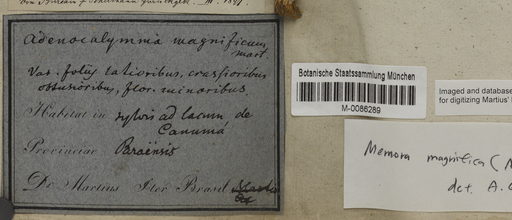 Adenocalymnia magnificum
Mart.
Var. foliis latioribus, crassioribus
obtusioribus, flor. minoribus.
Habitat in sylvis ad lacum de
Canumá
Provinciae Paraënsis
Dr. Martius Iter Brasil
Botanische Staatssammlung München
M-0086289
Imaged and database
for digitizing Martius'
Memora magnifica (M
det. A.